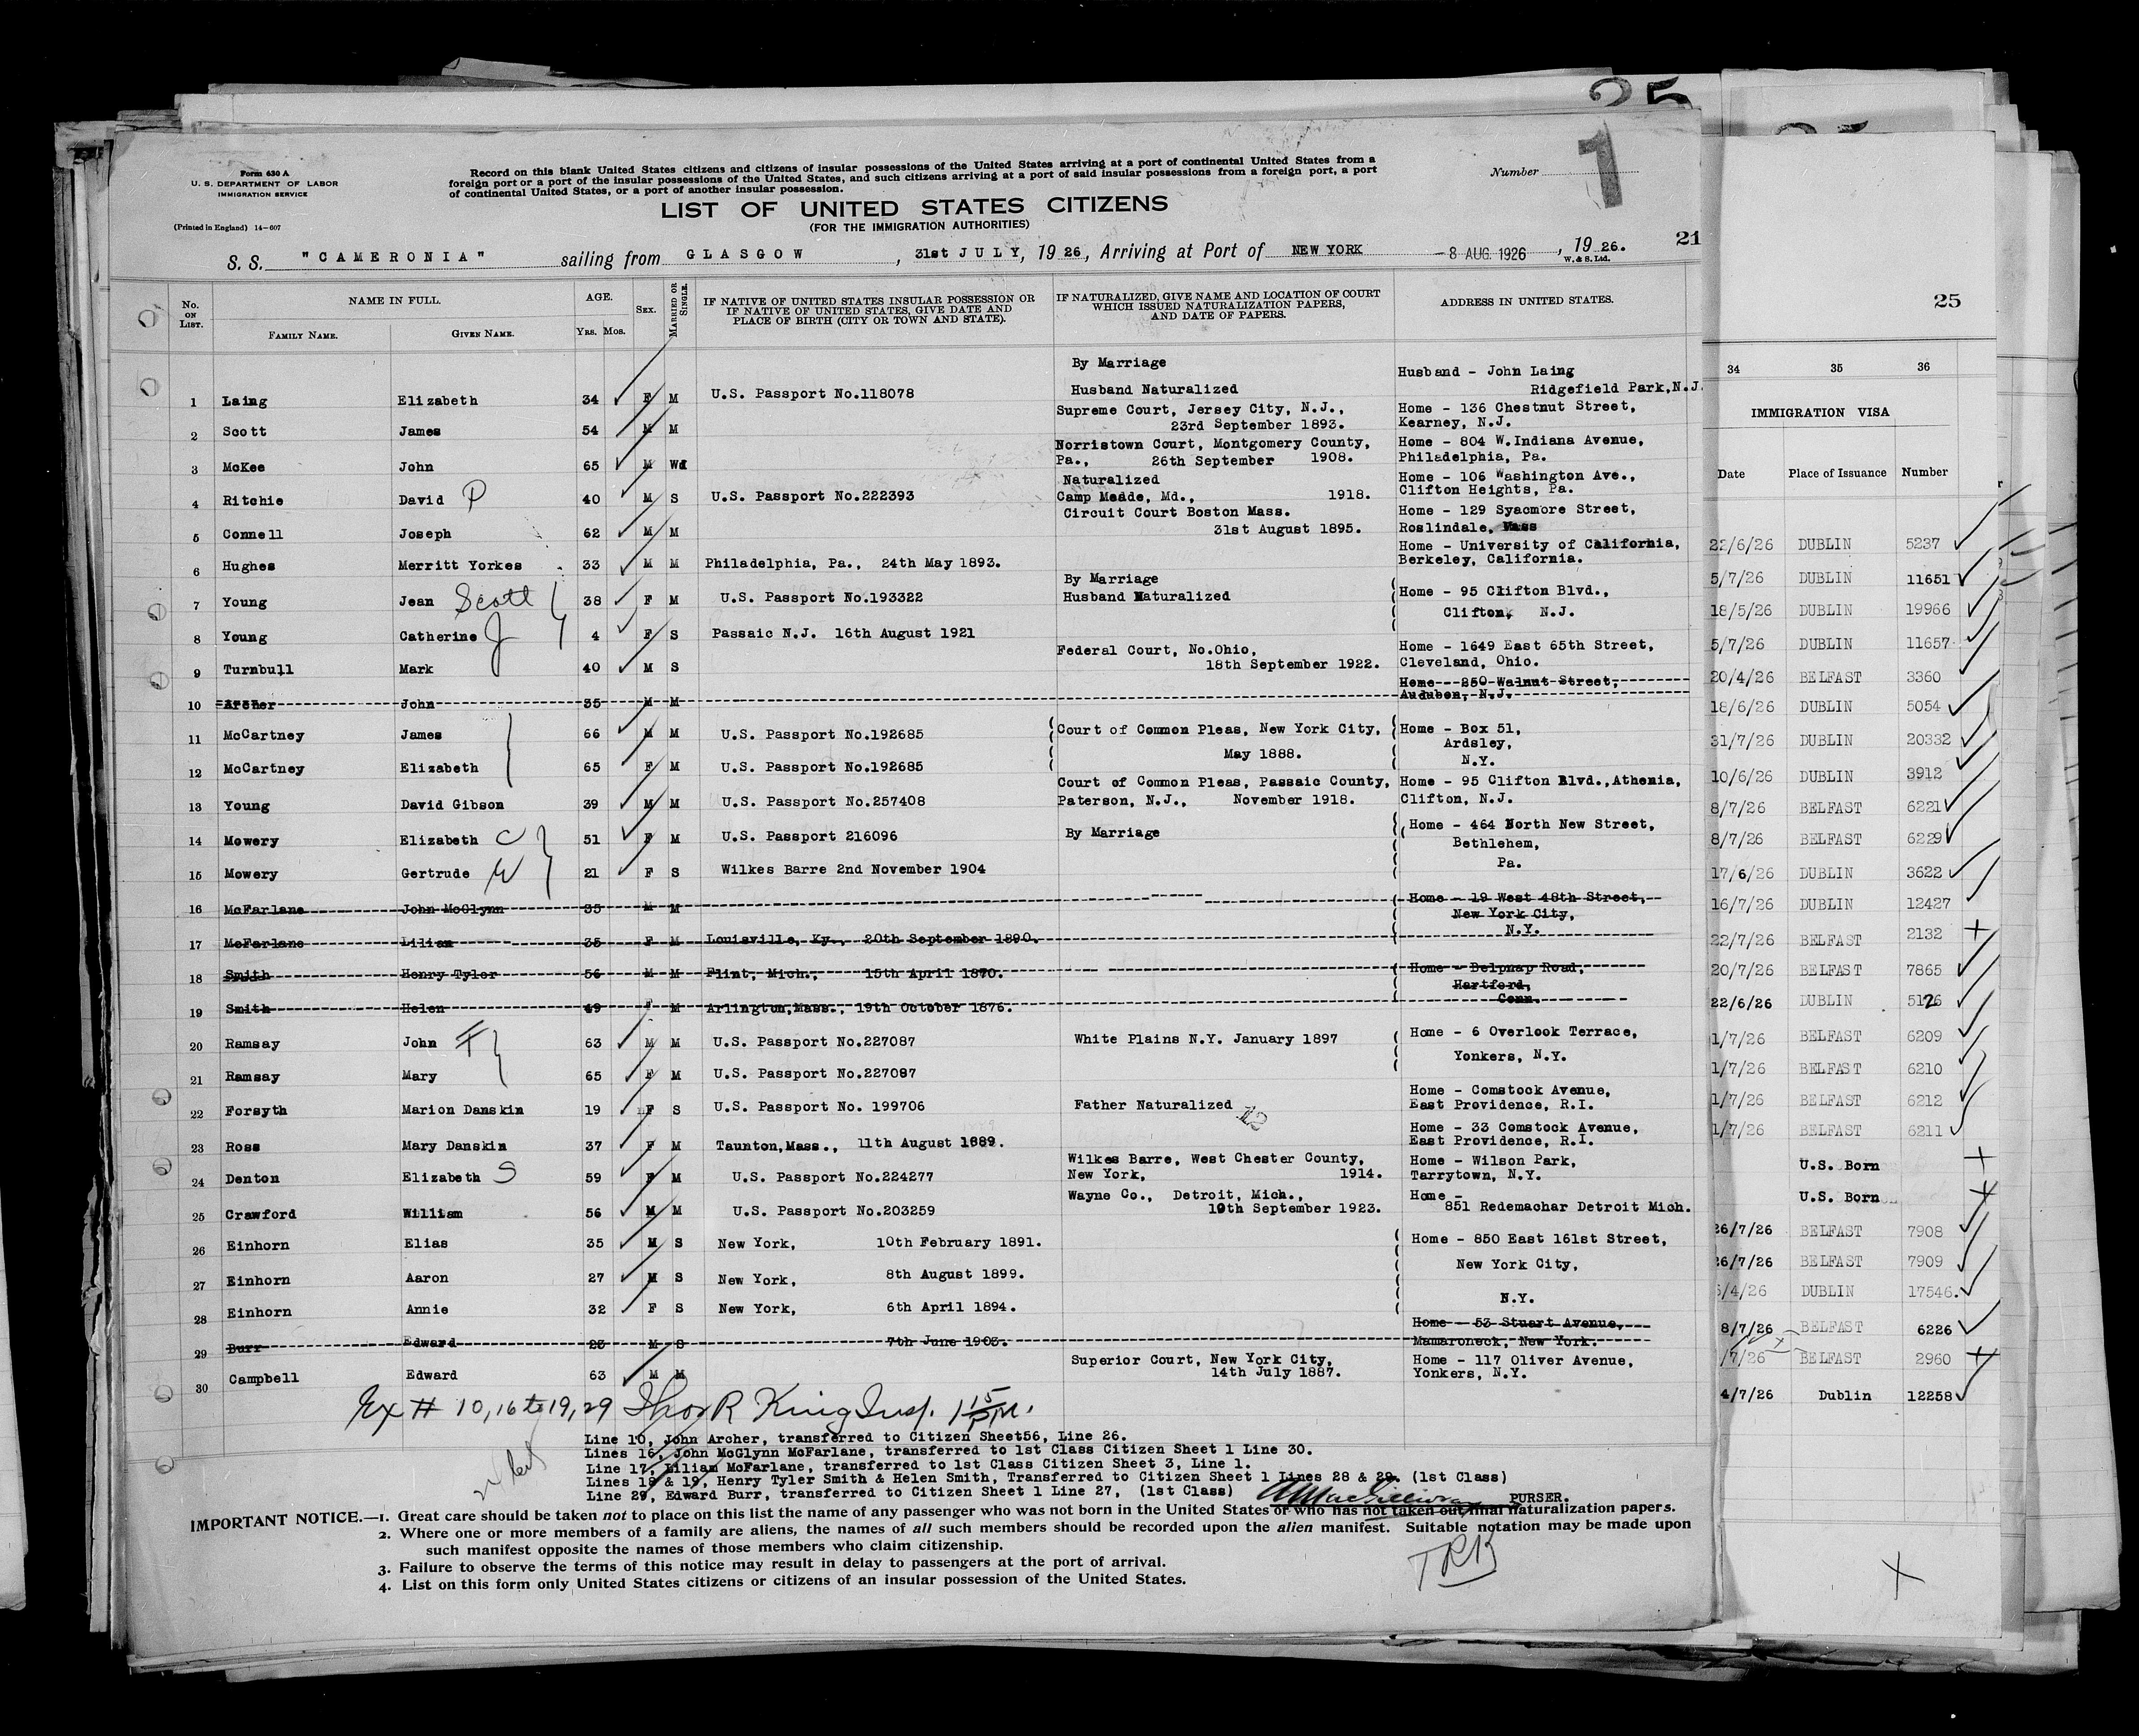 25
Form 630 A
U. S. DEPARTMENT OF LABOR
IMMIGRATION SERVICE
(Printed in England) 14-607
Record on this blank United States citizens and citizens of insular possessions of the United States arriving at a port of continental United States from a
foreign port or a port of the insular possessions of the United States, and such citizens arriving at a port of said insular possessions from a foreign port, a port
of continental United States, or a port of another insular possession.
Number 1
LIST OF UNITED STATES CITIZENS
(FOR THE IMMIGRATION AUTHORITIES)
S. S. "CAMERONIA" sailing from GLASGOW, 31st JULY, 19 26, Arriving at Port of NEW YORK -8 AUG. 1926, 19 26.
W. & S. Ltd.
21
No. ON LIST.
NAME IN FULL.
FAMILY NAME. GIVEN NAME.
AGE.
YRS. MOS.
SEX.
MARRIED OR SINGLE.
IF NATIVE OF UNITED STATES INSULAR POSSESSION OR
IF NATIVE OF UNITED STATES, GIVE DATE AND
PLACE OF BIRTH (CITY OR TOWN AND STATE).
IF NATURALIZED, GIVE NAME AND LOCATION OF COURT
WHICH ISSUED NATURALIZATION PAPERS,
AND DATE OF PAPERS.
ADDRESS IN UNITED STATES.
By Marriage
Husband - John Laing
1 Laing Elizabeth 34 F M U.S. Passport No.118078 Husband Naturalized Ridgefield Park, N.J.
Supreme Court, Jersey City, N.J., Home - 136 Chestnut Street,
2 Scott James 54 M M 23rd September 1893. Kearney, N.J.
Norristown Court, Montgomery County, Home - 804 W. Indiana Avenue,
3 McKee John 65 M Wd Pa., 26th September 1908. Philadelphia, Pa.
Naturalized Home - 106 Washington Ave.,
4 Ritchie David P 40 M S U.S. Passport No.222393 Camp Medde, Md., 1918. Clifton Heights, Pa.
Circuit Court Boston Mass. Home - 129 Syacmore Street,
5 Connell Joseph 62 M M 31st August 1895. Roslindale, Mass
Home - University of California,
6 Hughes Merritt Yorkes 33 M M Philadelphia, Pa., 24th May 1893. Berkeley, California.
By Marriage
7 Young Jean Scott 38 F M U.S. Passport No.193322 Husband Naturalized Home - 95 Clifton Blvd.,
Clifton, N.J.
8 Young Catherine J 4 F S Passaic N.J. 16th August 1921
Federal Court, No.Ohio, Home - 1649 East 65th Street,
9 Turnbull Mark 40 M S 18th September 1922. Cleveland, Ohio.
Home - 250 Walnut Street,
10 Archer John 35 M M Audubon, N.J.
11 McCartney James 66 M M U.S. Passport No.192685 Court of Common Pleas, New York City, Home - Box 51,
May 1888. Ardsley,
12 McCartney Elizabeth 65 F M U.S. Passport No.192685 N.Y.
Court of Common Pleas, Passaic County, Home - 95 Clifton Blvd., Athenia,
13 Young David Gibson 39 M M U.S. Passport No.257408 Paterson, N.J., November 1918. Clifton, N.J.
14 Mowery Elizabeth C 51 F M U.S. Passport 216096 By Marriage Home - 464 North New Street,
Bethlehem,
Pa.
15 Mowery Gertrude W 21 F S Wilkes Barre 2nd November 1904
16 McFarlane John McGlynn 35 M M Home - 19 West 48th Street,
New York City,
N.Y.
17 McFarlane Lilian 35 F M Louisville, Ky., 20th September 1890.
18 Smith Henry Tyler 56 M M Flint, Mich., 15th April 1870. Home - Belpnap Road,
Hartford,
Conn.
19 Smith Helen 49 F M Arlington, Mass., 19th October 1876.
20 Ramsay John F 63 M M U.S. Passport No.227087 White Plains N.Y. January 1897 Home - 6 Overlook Terrace,
Yonkers, N.Y.
21 Ramsay Mary 65 F M U.S. Passport No.227087
Home - Comstock Avenue,
22 Forsyth Marion Danskin 19 F S U.S. Passport No. 199706 Father Naturalized East Providence, R.I.
Home - 33 Comstock Avenue,
23 Ross Mary Danskin 37 F M Taunton, Mass., 11th August 1889. East Providence, R.I.
Wilkes Barre, West Chester County, Home - Wilson Park,
24 Denton Elizabeth S 59 F M U.S. Passport No.224277 New York, 1914. Tarrytown, N.Y.
Wayne Co., Detroit, Mich., Home -
25 Crawford William 56 M M U.S. Passport No.203259 10th September 1923. 851 Redemachar Detroit Mich.
26 Einhorn Elias 35 M S New York, 10th February 1891. Home - 850 East 161st Street,
New York City,
27 Einhorn Aaron 27 M S New York, 8th August 1899.
N.Y.
28 Einhorn Annie 32 F S New York, 6th April 1894.
Home - 53 Stuart Avenue,
29 Burr Edward 23 M S 7th June 1903. Mamaroneck, New York.
Superior Court, New York City, Home - 117 Oliver Avenue,
30 Campbell Edward 63 M M 14th July 1887. Yonkers, N.Y.
Ex # 10, 16 to 19, 29 Thos R King Insp. 1 15 PM.
Line 10, John Archer, transferred to Citizen Sheet56, Line 26.
Lines 16, John McGlynn McFarlane, transferred to 1st Class Citizen Sheet 1 Line 30.
Line 17, Liliam McFarlane, transferred to 1st Class Citizen Sheet 3, Line 1.
Lines 18 & 19, Henry Tyler Smith & Helen Smith, Transferred to Citizen Sheet 1 Lines 28 & 29. (1st Class)
Line 29, Edward Burr, transferred to Citizen Sheet 1 Line 27, (1st Class)
PURSER.
IMPORTANT NOTICE.—1. Great care should be taken not to place on this list the name of any passenger who was not born in the United States or who has not taken out final naturalization papers.
2. Where one or more members of a family are aliens, the names of all such members should be recorded upon the alien manifest. Suitable notation may be made upon
such manifest opposite the names of those members who claim citizenship.
3. Failure to observe the terms of this notice may result in delay to passengers at the port of arrival.
4. List on this form only United States citizens or citizens of an insular possession of the United States.
TRK
25
34 35 36
IMMIGRATION VISA
Date Place of Issuance Number
22/6/26 DUBLIN 5237
5/7/26 DUBLIN 11651
18/5/26 DUBLIN 19966
5/7/26 DUBLIN 11657
20/4/26 BELFAST 3360
18/6/26 DUBLIN 5054
31/7/26 DUBLIN 20332
10/6/26 DUBLIN 3912
8/7/26 BELFAST 6221
8/7/26 BELFAST 6229
17/6/26 DUBLIN 3622
16/7/26 DUBLIN 12427
22/7/26 BELFAST 2132
20/7/26 BELFAST 7865
22/6/26 DUBLIN 5126
1/7/26 BELFAST 6209
1/7/26 BELFAST 6210
1/7/26 BELFAST 6212
1/7/26 BELFAST 6211
U.S. Born
U.S. Born
26/7/26 BELFAST 7908
26/7/26 BELFAST 7909
/4/26 DUBLIN 17546.
8/7/26 BELFAST 6226
/7/26 BELFAST 2960
4/7/26 Dublin 12258